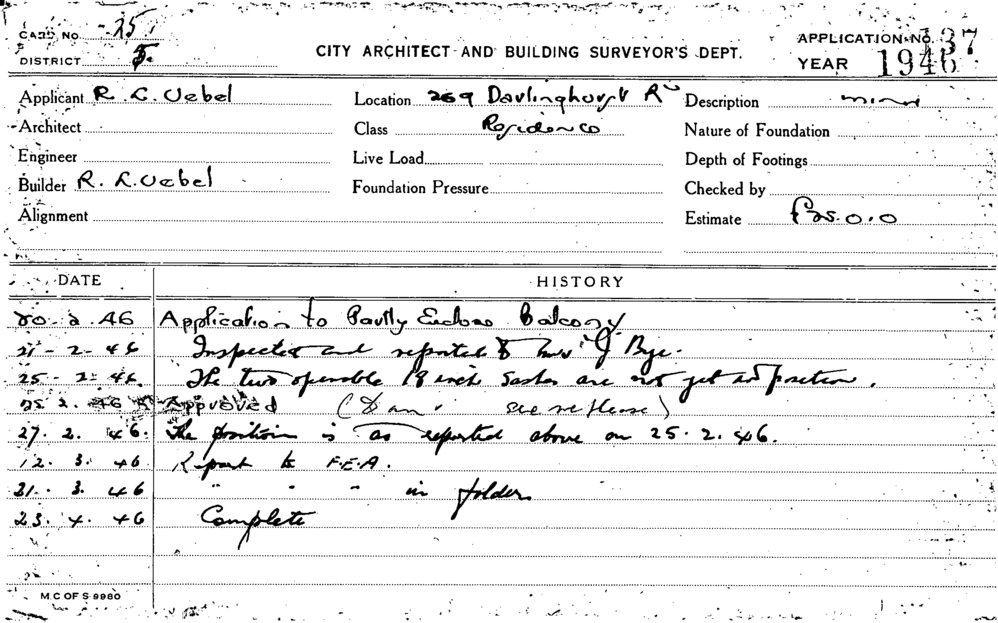 CARD NO. 25
DISTRICT 5.
CITY ARCHITECT AND BUILDING SURVEYOR'S DEPT.
APPLICATION NO. 137
YEAR 1946
Applicant R. L. Uebel Location 269 Darlinghurst Rd Description minor
Architect Class Residence Nature of Foundation
Engineer Live Load Depth of Footings
Builder R. L. Uebel Foundation Pressure Checked by
Alignment Estimate £25.0.0
DATE HISTORY
20.2.46 Application to Partly Enclose Balcony
21-2-46 Inspected and reported to J Bye.
25-2-46. The two openable 18 inch sashes are not yet in position.
25 2. 46 Approved (see release)
27. 2. 46. The position is as reported above on 25.2.46.
12. 3. 46 Report to F.E.A.
21. 3. 46 " " " in folder
23. 4. 46 Complete
M.C OF S 9980